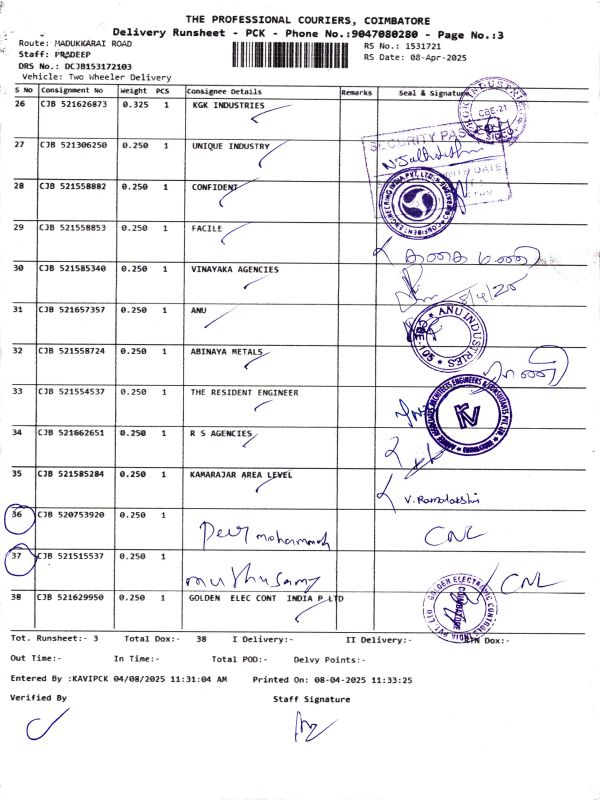 THE PROFESSIONAL COURIERS, COIMBATORE
Delivery Runsheet - PCK - Phone No.:9047080280 - Page No.:3
Route: MADUKKARAI ROAD
RS No.: 1531721
Staff: PRADEEP
RS Date: 08-Apr-2025
DRS No.: DCJB153172103
Vehicle: Two Wheeler Delivery
S No Consignment No Weight PCS Consignee Details Remarks Seal & Signature
26 CJB 521626873 0.325 1 KGK INDUSTRIES
CBE-21
27 CJB 521306250 0.250 1 UNIQUE INDUSTRY
SECURITY PASS
DATE
28 CJB 521558882 0.250 1 CONFIDENT
CONFIDENT ENGINEERING INDIA PVT. LTD.
29 CJB 521558853 0.250 1 FACILE
30 CJB 521585340 0.250 1 VINAYAKA AGENCIES
8/4/25
31 CJB 521657357 0.250 1 ANU
ANU INDUSTRIES
32 CJB 521558724 0.250 1 ABINAYA METALS
33 CJB 521554537 0.250 1 THE RESIDENT ENGINEER
34 CJB 521662651 0.250 1 R S AGENCIES
35 CJB 521585284 0.250 1 KAMARAJAR AREA LEVEL
V. Ramalakshi
36 CJB 520753920 0.250 1
CNL
37 CJB 521515537 0.250 1 muthusamy
CNL
38 CJB 521629950 0.250 1 GOLDEN ELEC CONT INDIA P LTD
GOLDEN ELECTRONIC CONTROLS INDIA PVT. LTD
COIMBATORE
Tot. Runsheet:- 3 Total Dox:- 38 I Delivery:- II Delivery:- RTN Dox:-
Out Time:- In Time:- Total POD:- Delvy Points:-
Entered By :KAVIPCK 04/08/2025 11:31:04 AM Printed On: 08-04-2025 11:33:25
Verified By Staff Signature